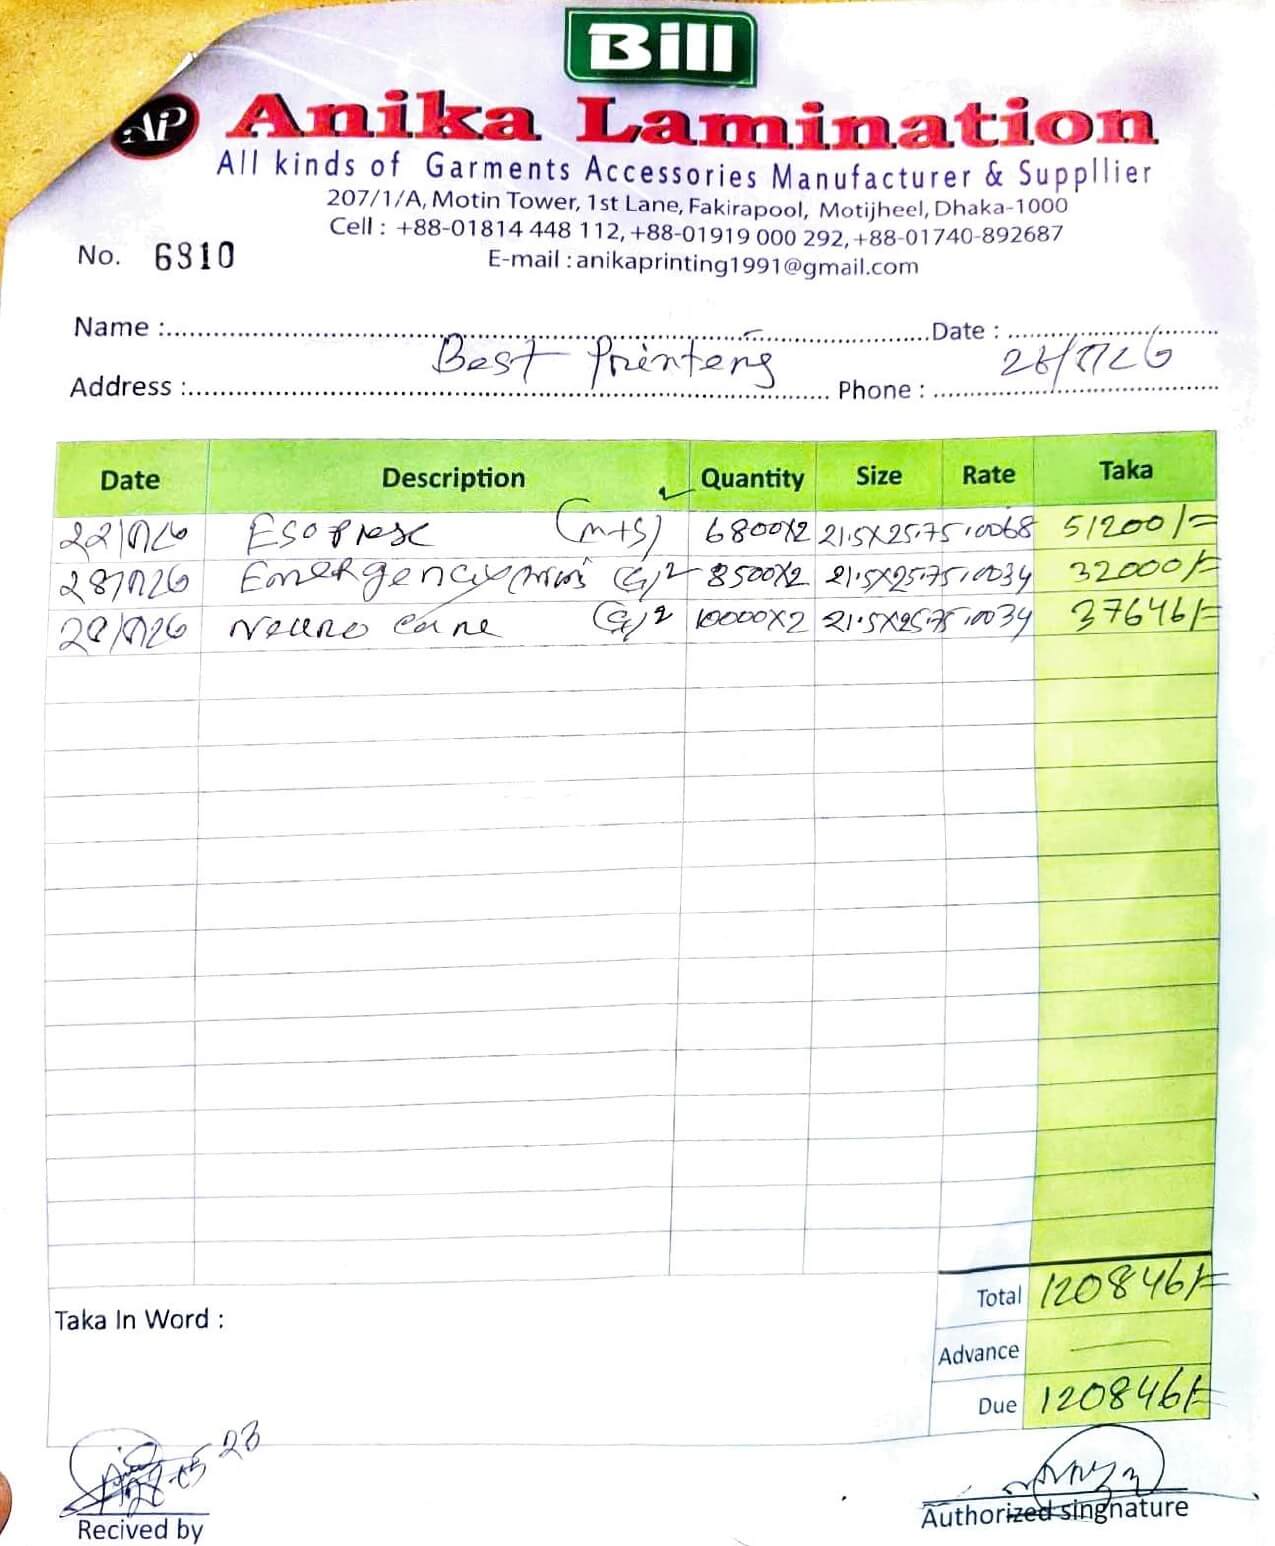 Bill
AP Anika Lamination
All kinds of Garments Accessories Manufacturer & Suppllier
207/1/A, Motin Tower, 1st Lane, Fakirapool, Motijheel, Dhaka-1000
Cell : +88-01814 448 112, +88-01919 000 292, +88-01740-892687
E-mail : anikaprinting1991@gmail.com
No. 6310
Name : Best Printing Date :
Address : Phone :
Date Description Quantity Size Rate Taka
Esoprex (M+S) 6800X2 21.5X25.75 .0068 51200/=
Emergency (G)2 8500X2 21.5X25.75 .0034 32000/=
Neuro Care (G)2 10000X2 21.5X25.75 .0034 37646/=
Total 120846/=
Taka In Word :
Advance —
Due 120846/=
Recived by
Authorized singnature